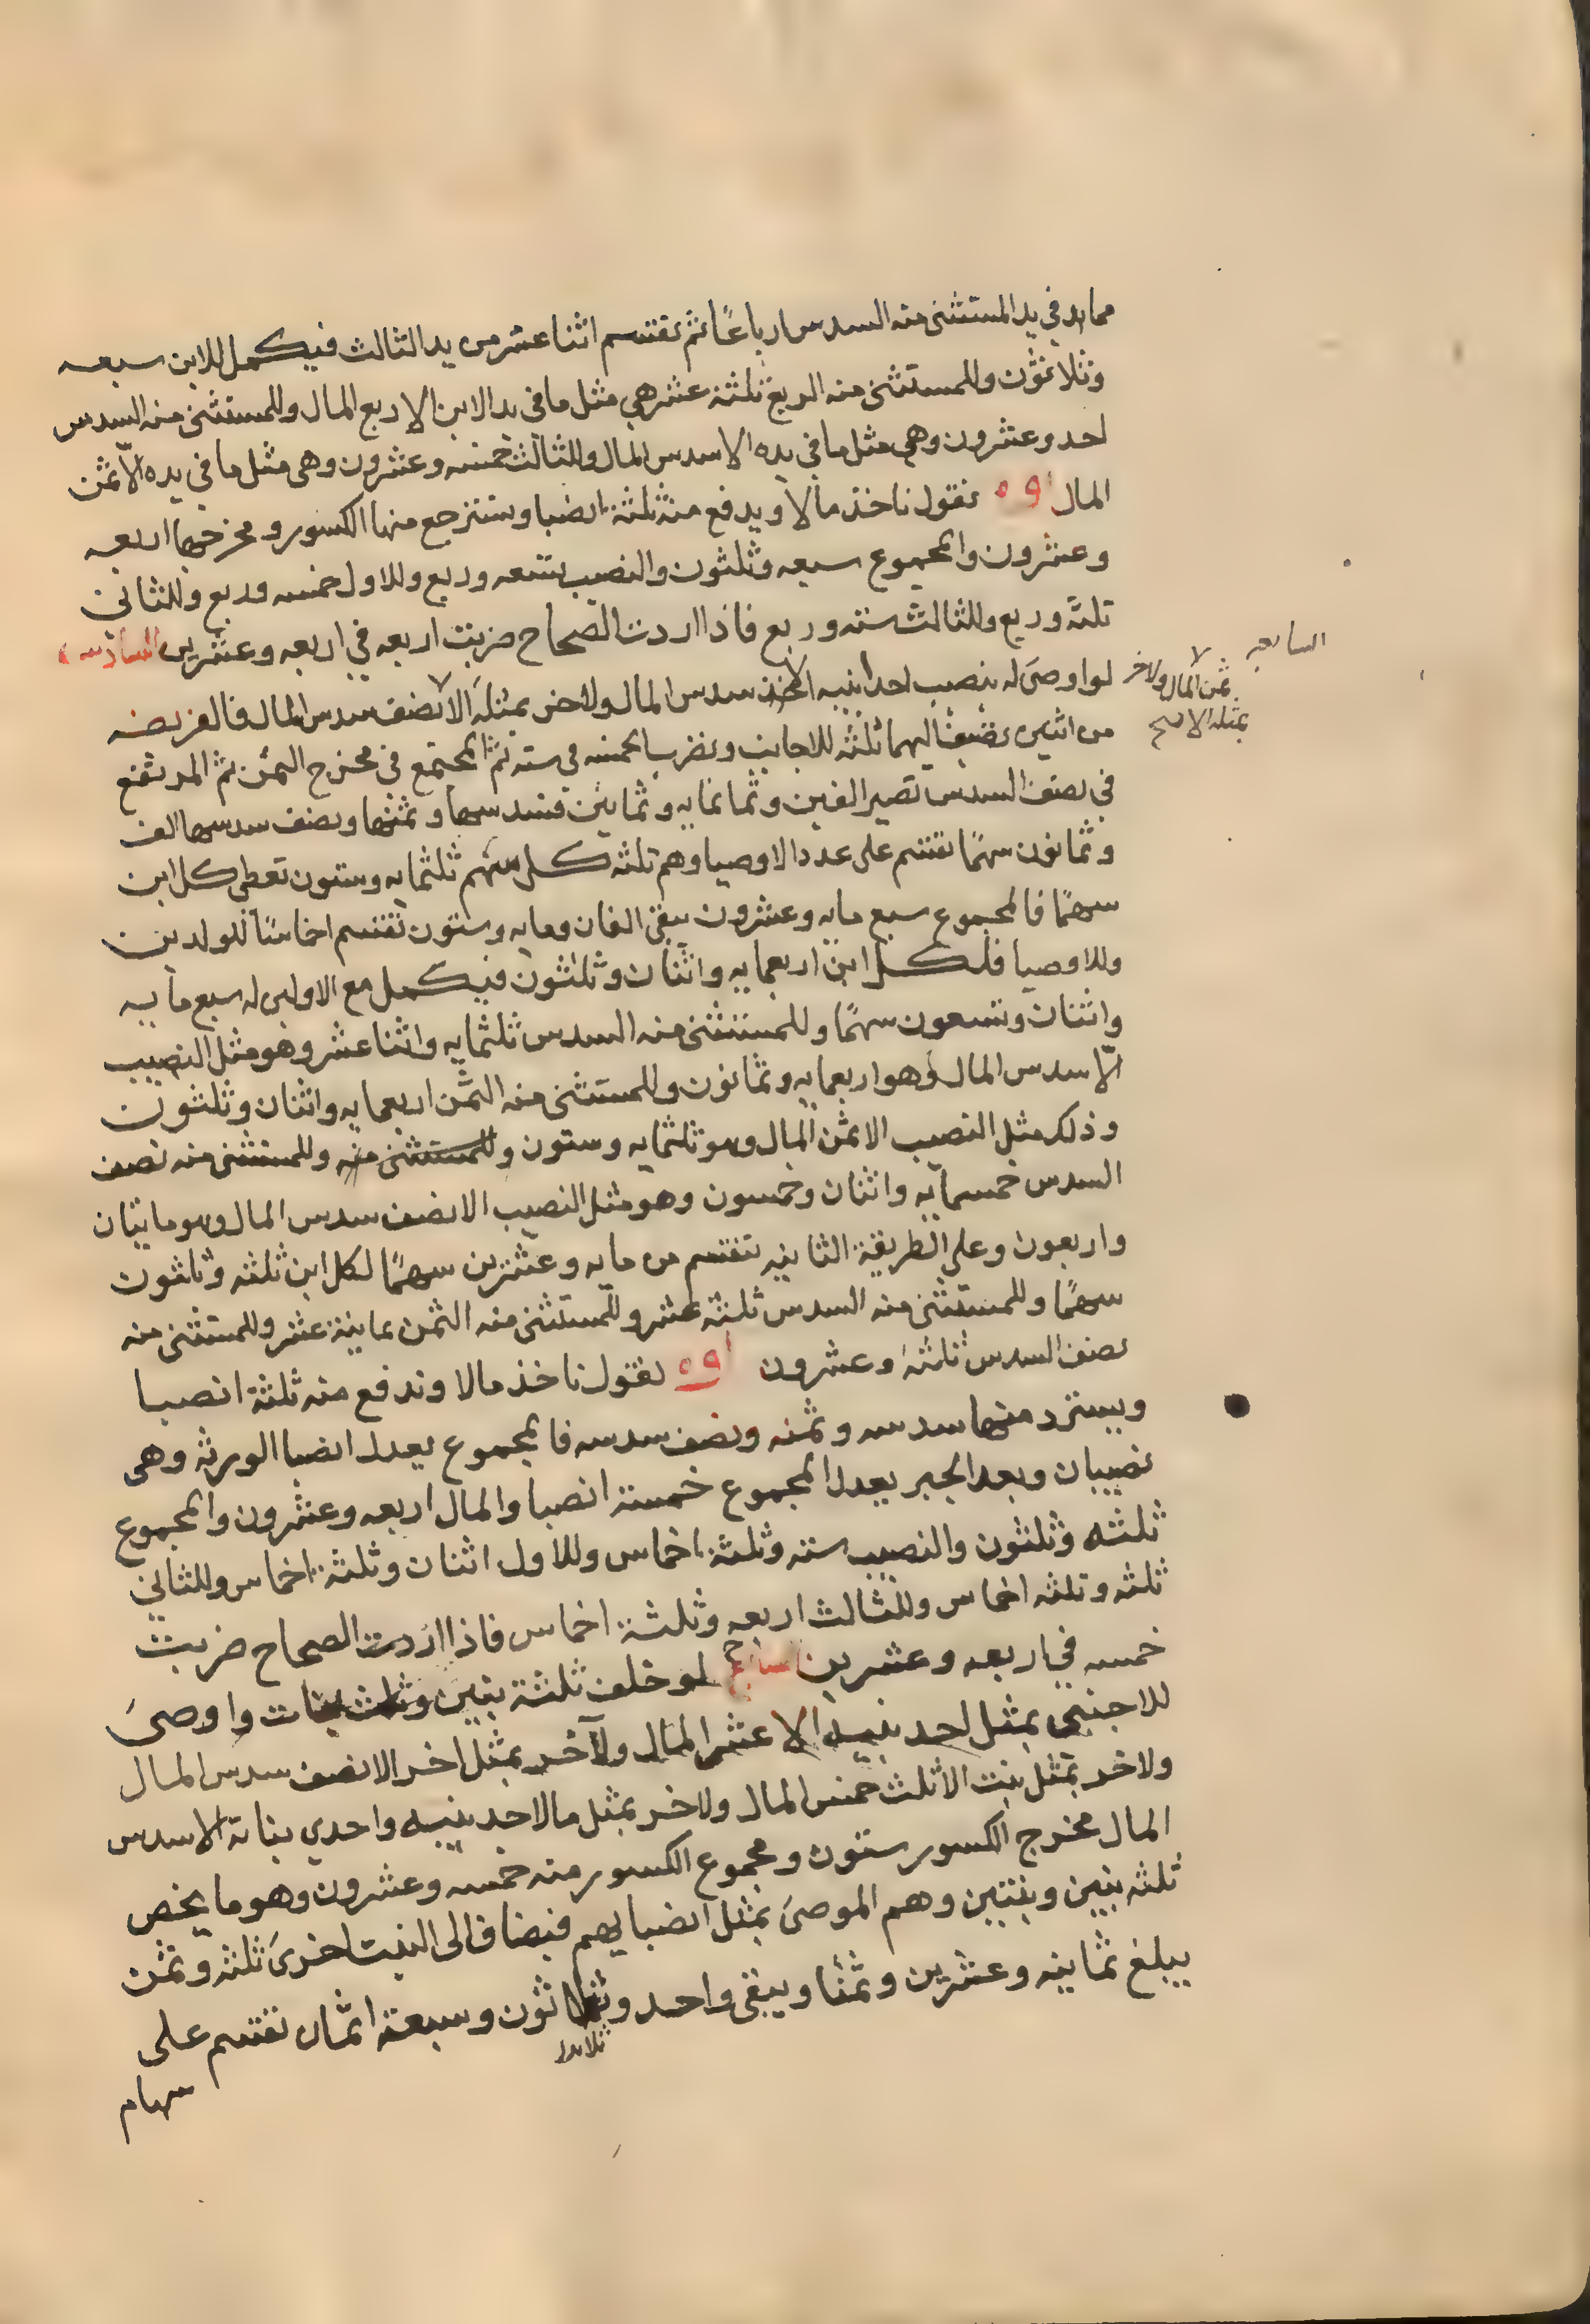 مما بدا في يد المستثنى منه السدس ارباعًا ثم تقتسم اثنا عشر من يد الثالث فيكمل للابن سبعه
وثلاثون وللمستثنى منه الربع ثلثة عشر هي مثل ما في يد الابن الا ربع المال وللمستثنى منه السدس
احد وعشرون وهي مثل ما في يده الا سدس المال وللثالث خمسه وعشرون وهي مثل ما في يده الّا ثمن
المال او نقول ناخذ مالا ويدفع منه ثلثة انصبا ويسترجع منها الكسور ومخرجها اربعه
وعشرون والمجموع سبعه وثلثون والنصيب تسعه وربع وللاول خمسه وربع وللثاني
ثلثة وربع وللثالث سته وربع فاذا اردت الصحاح ضربت اربعه في اربعه وعشرين السادسه
لو اوصى له بنصيب احد ابنيه الا سدس المال ولاخر بمثله الا نصف سدس المال فالفريضه
السابعه
ثمن المال ولاخر
بمثله الا
من اثنين نضيف اليهما ثلثه للاجانب ونضرب الخمسه في سته ثم المجتمع في مخرج الثمن ثم المرتفع
في نصف السدس تصير الفين وثمانمايه وثمانين فسدسها وثمنها ونصف سدسها الف
وثمانون سهمًا تقتسم على عدد الاوصيا وهم ثلثه كل سهم ثلثمايه وستون تعطى كل ابن
سهمًا فالمجموع سبع مايه وعشرون يبقى الفان ومايه وستون تقتسم اخماسًا للولدين
وللاوصيا فلكل ابن اربعمايه واثنان وثلثون فيكمل مع الاولى له سبع مايه
واثنان وتسعون سهمًا وللمستثنى منه السدس ثلثمايه واثنا عشر وهو مثل النصيب
الّا سدس المال وهو اربعمايه وثمانون وللمستثنى منه الثمن اربعمايه واثنان وثلثون
وذلك مثل النصيب الا ثمن المال وهو ثلثمايه وستون وللمستثنى منه وللمستثنى منه نصف
السدس خمسمايه واثنان وخمسون وهو مثل النصيب الا نصف سدس المال وهو مايتان
واربعون وعلى الطريقة الثانيه تقتسم من مايه وعشرين سهمًا لكل ابن ثلثه وثلثون
سهمًا وللمستثنى منه السدس ثلثة عشر وللمستثنى منه الثمن ثمانية عشر وللمستثنى منه
نصف السدس ثلثة وعشرون او نقول ناخذ مالا وندفع منه ثلثة انصبا
ويسترد منها سدسه وثمنه ونصف سدسه فالمجموع يعدل انصبا الورثه وهي
نصيبان وبعد الجبر يعدل المجموع خمسة انصبا والمال اربعه وعشرون والمجموع
ثلثه وثلثون والنصيب سته وثلثة اخماس وللاول اثنان وثلثة اخماس وللثاني
ثلثه وثلثه اخماس وللثالث اربعه وثلثة اخماس فاذا اردت الصحاح ضربت
خمسه في اربعه وعشرين السابع لو خلف ثلثة بنين وثلث بنات واوصى
للاجنبي بمثل احد بنيه الا عشر المال ولاخر بمثل اخر الا نصف سدس المال
ولاخر بمثل بنت الا ثلث خمس المال ولاخر بمثل ما لاحد بنيه واحدى بناته الا سدس
المال مخرج الكسور ستون ومجموع الكسور منه خمسه وعشرون وهو ما يخص
ثلثه بنين وبنتين وهم الموصى بمثل انصبايهم فيضاف الى البنت اخرى ثلثه وثمن
يبلغ ثمانيه وعشرين وثمنًا ويبقى واحد وثلاثون وسبعة اثمان تقتسم على
ثلاثون
سهام